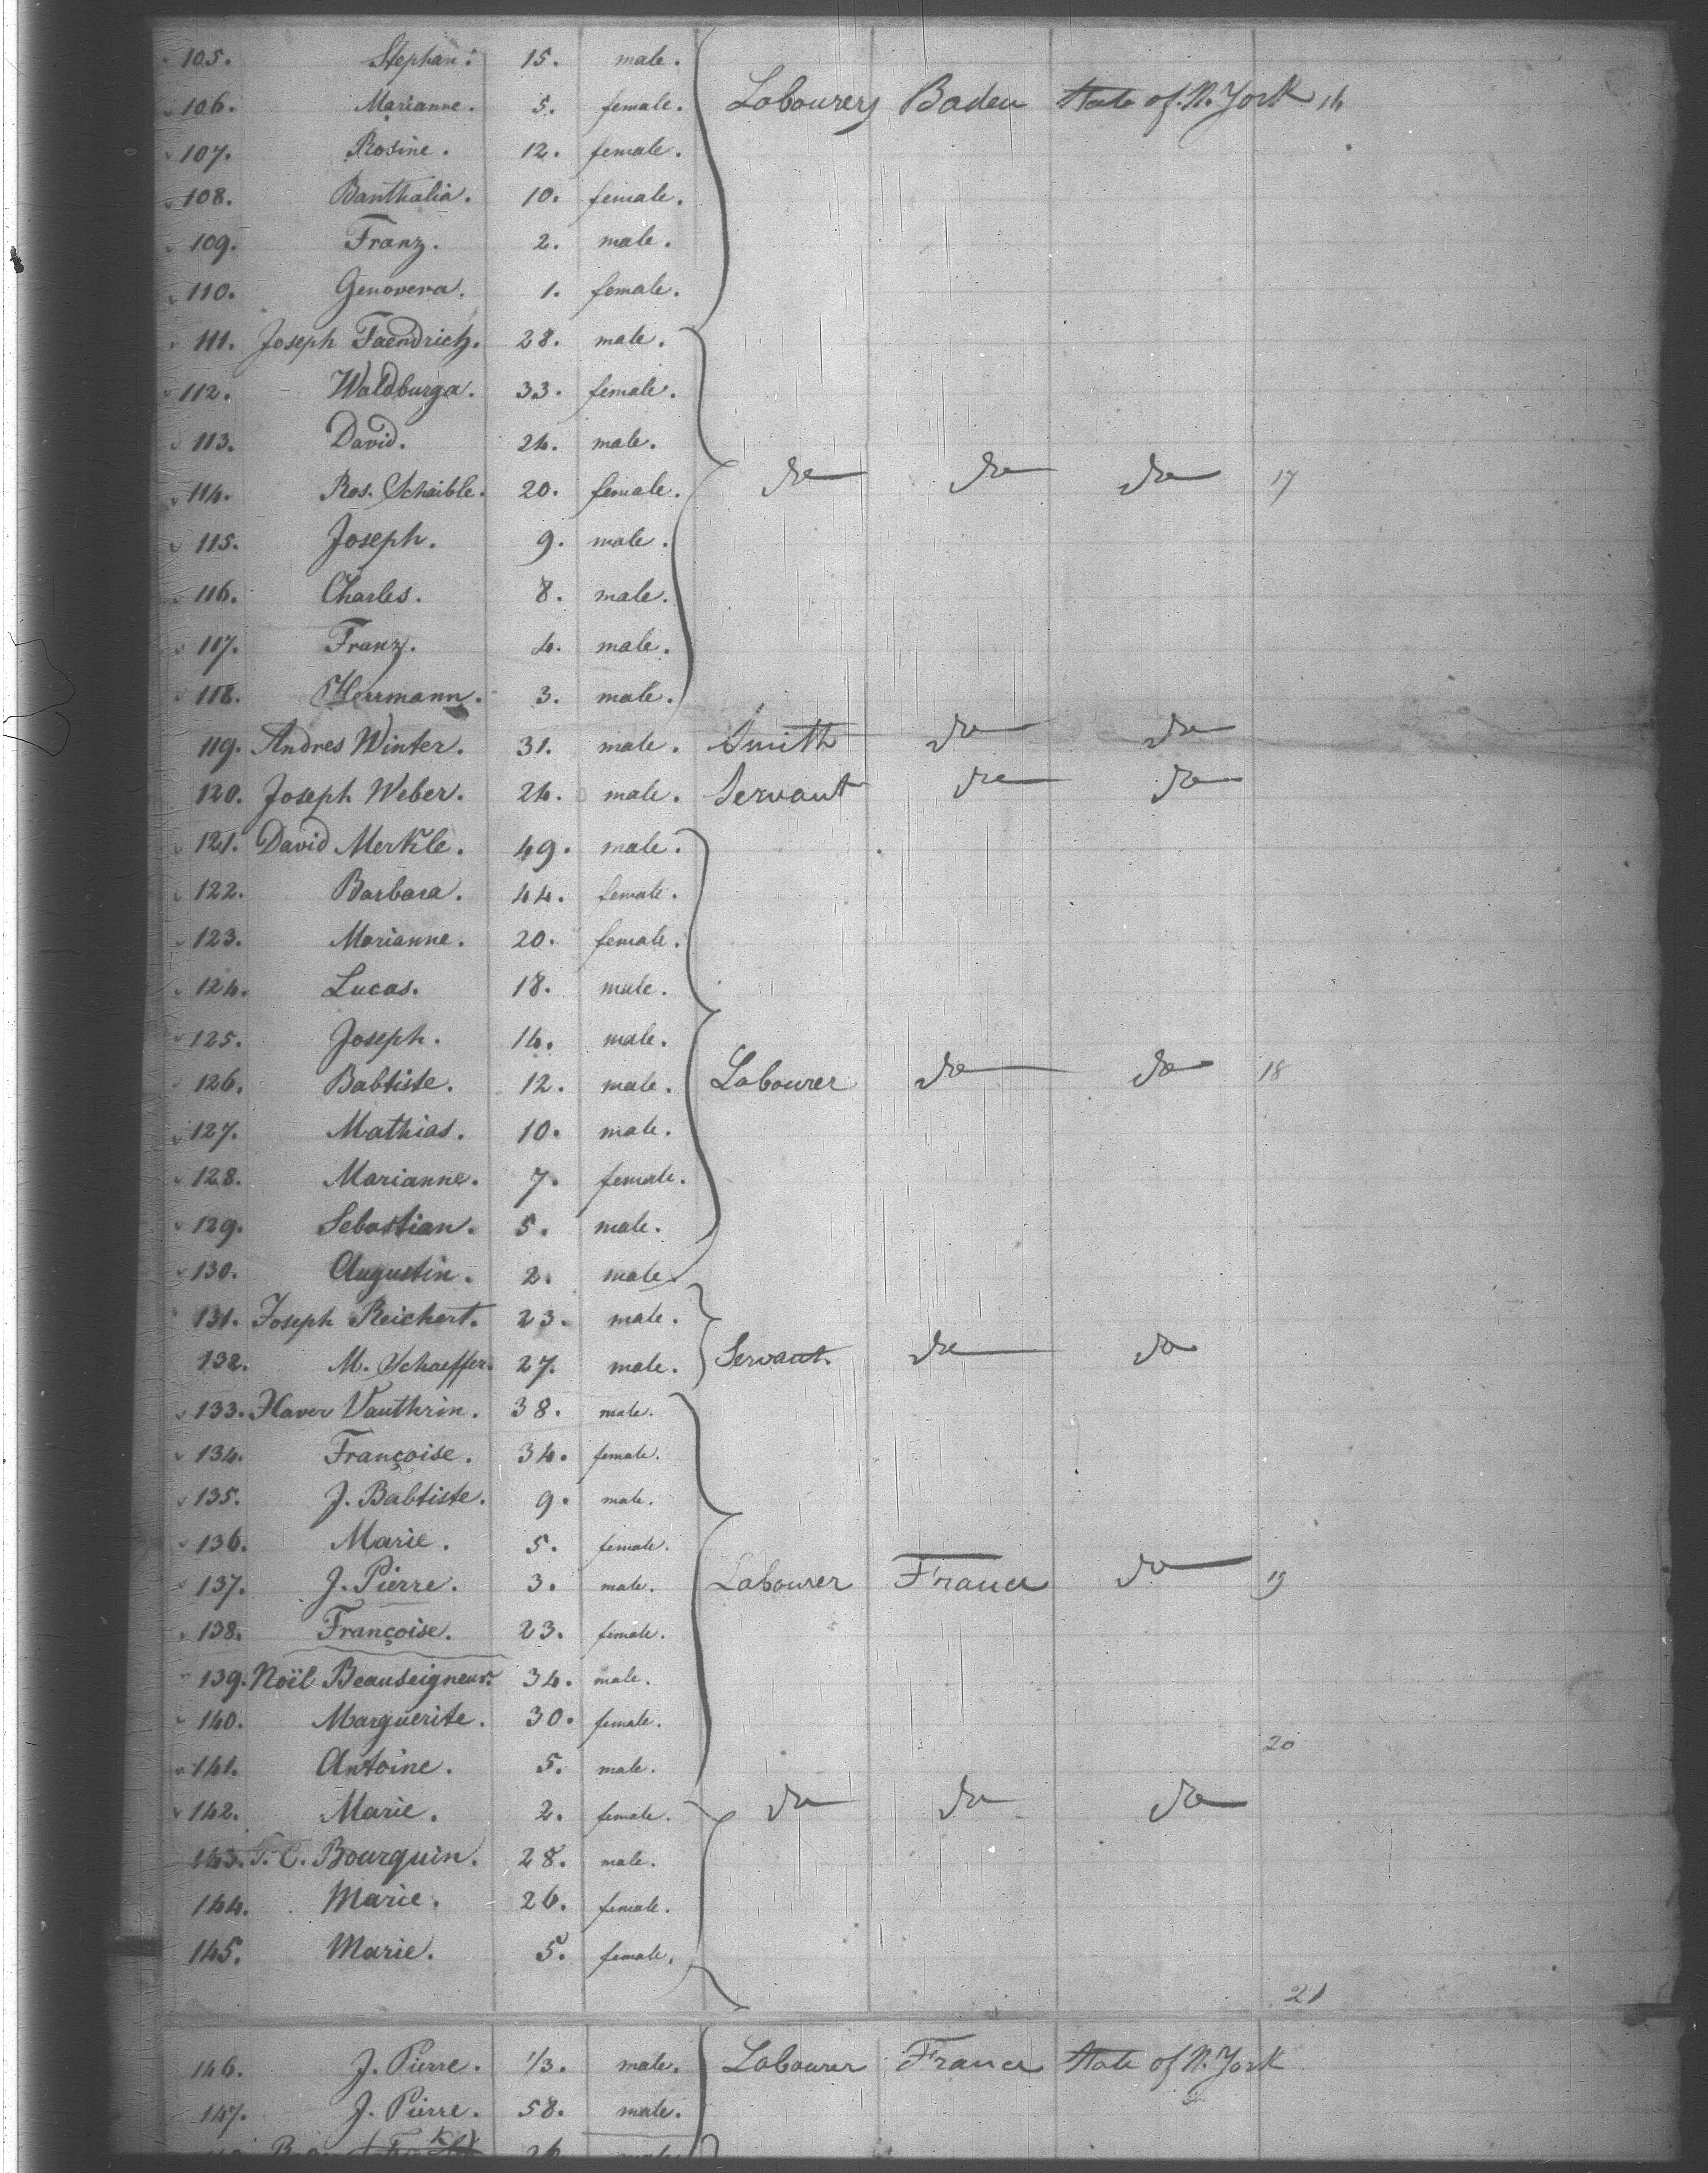 105. Stephan. 15. male.
106. Marianne. 5. female. Labourers Baden State of N. York 16
107. Rosine. 12. female.
108. Banthalia. 10. female.
109. Franz. 2. male.
110. Genovera. 1. female.
111. Joseph Faendrich. 28. male.
112. Waldburga. 33. female.
113. David. 24. male.
114. Ros. Schaible. 20. female. do do do 17
115. Joseph. 9. male.
116. Charles. 8. male.
117. Franz. 4. male.
118. Herrmann. 3. male.
119. Andres Winter. 31. male. Smith do do
120. Joseph Weber. 24. male. Servant do do
121. David Merkle. 49. male.
122. Barbara. 44. female.
123. Marianne. 20. female.
124. Lucas. 18. male.
125. Joseph. 14. male.
126. Babtiste. 12. male. Labourer do do 18
127. Mathias. 10. male.
128. Marianne. 7. female.
129. Sebastian. 5. male.
130. Augustin. 2. male.
131. Joseph Reichert. 23. male.
132. M. Schaeffer. 27. male. Servant do do
133. Xaver Vauthrin. 38. male.
134. Françoise. 34. female.
135. J. Babtiste. 9. male.
136. Marie. 5. female.
137. J. Pierre. 3. male. Labourer France do 19
138. Françoise. 23. female.
139. Noïl Beauseigneur. 34. male.
140. Marguerite. 30. female.
20
141. Antoine. 5. male.
142. Marie. 2. female. do do do
143. Bourquin. 28. male.
144. Marie. 26. female.
145. Marie. 5. female.
21
146. J. Pierre. 1/3. male. Labourer France State of N. York
147. J. Pierre. 58. male.